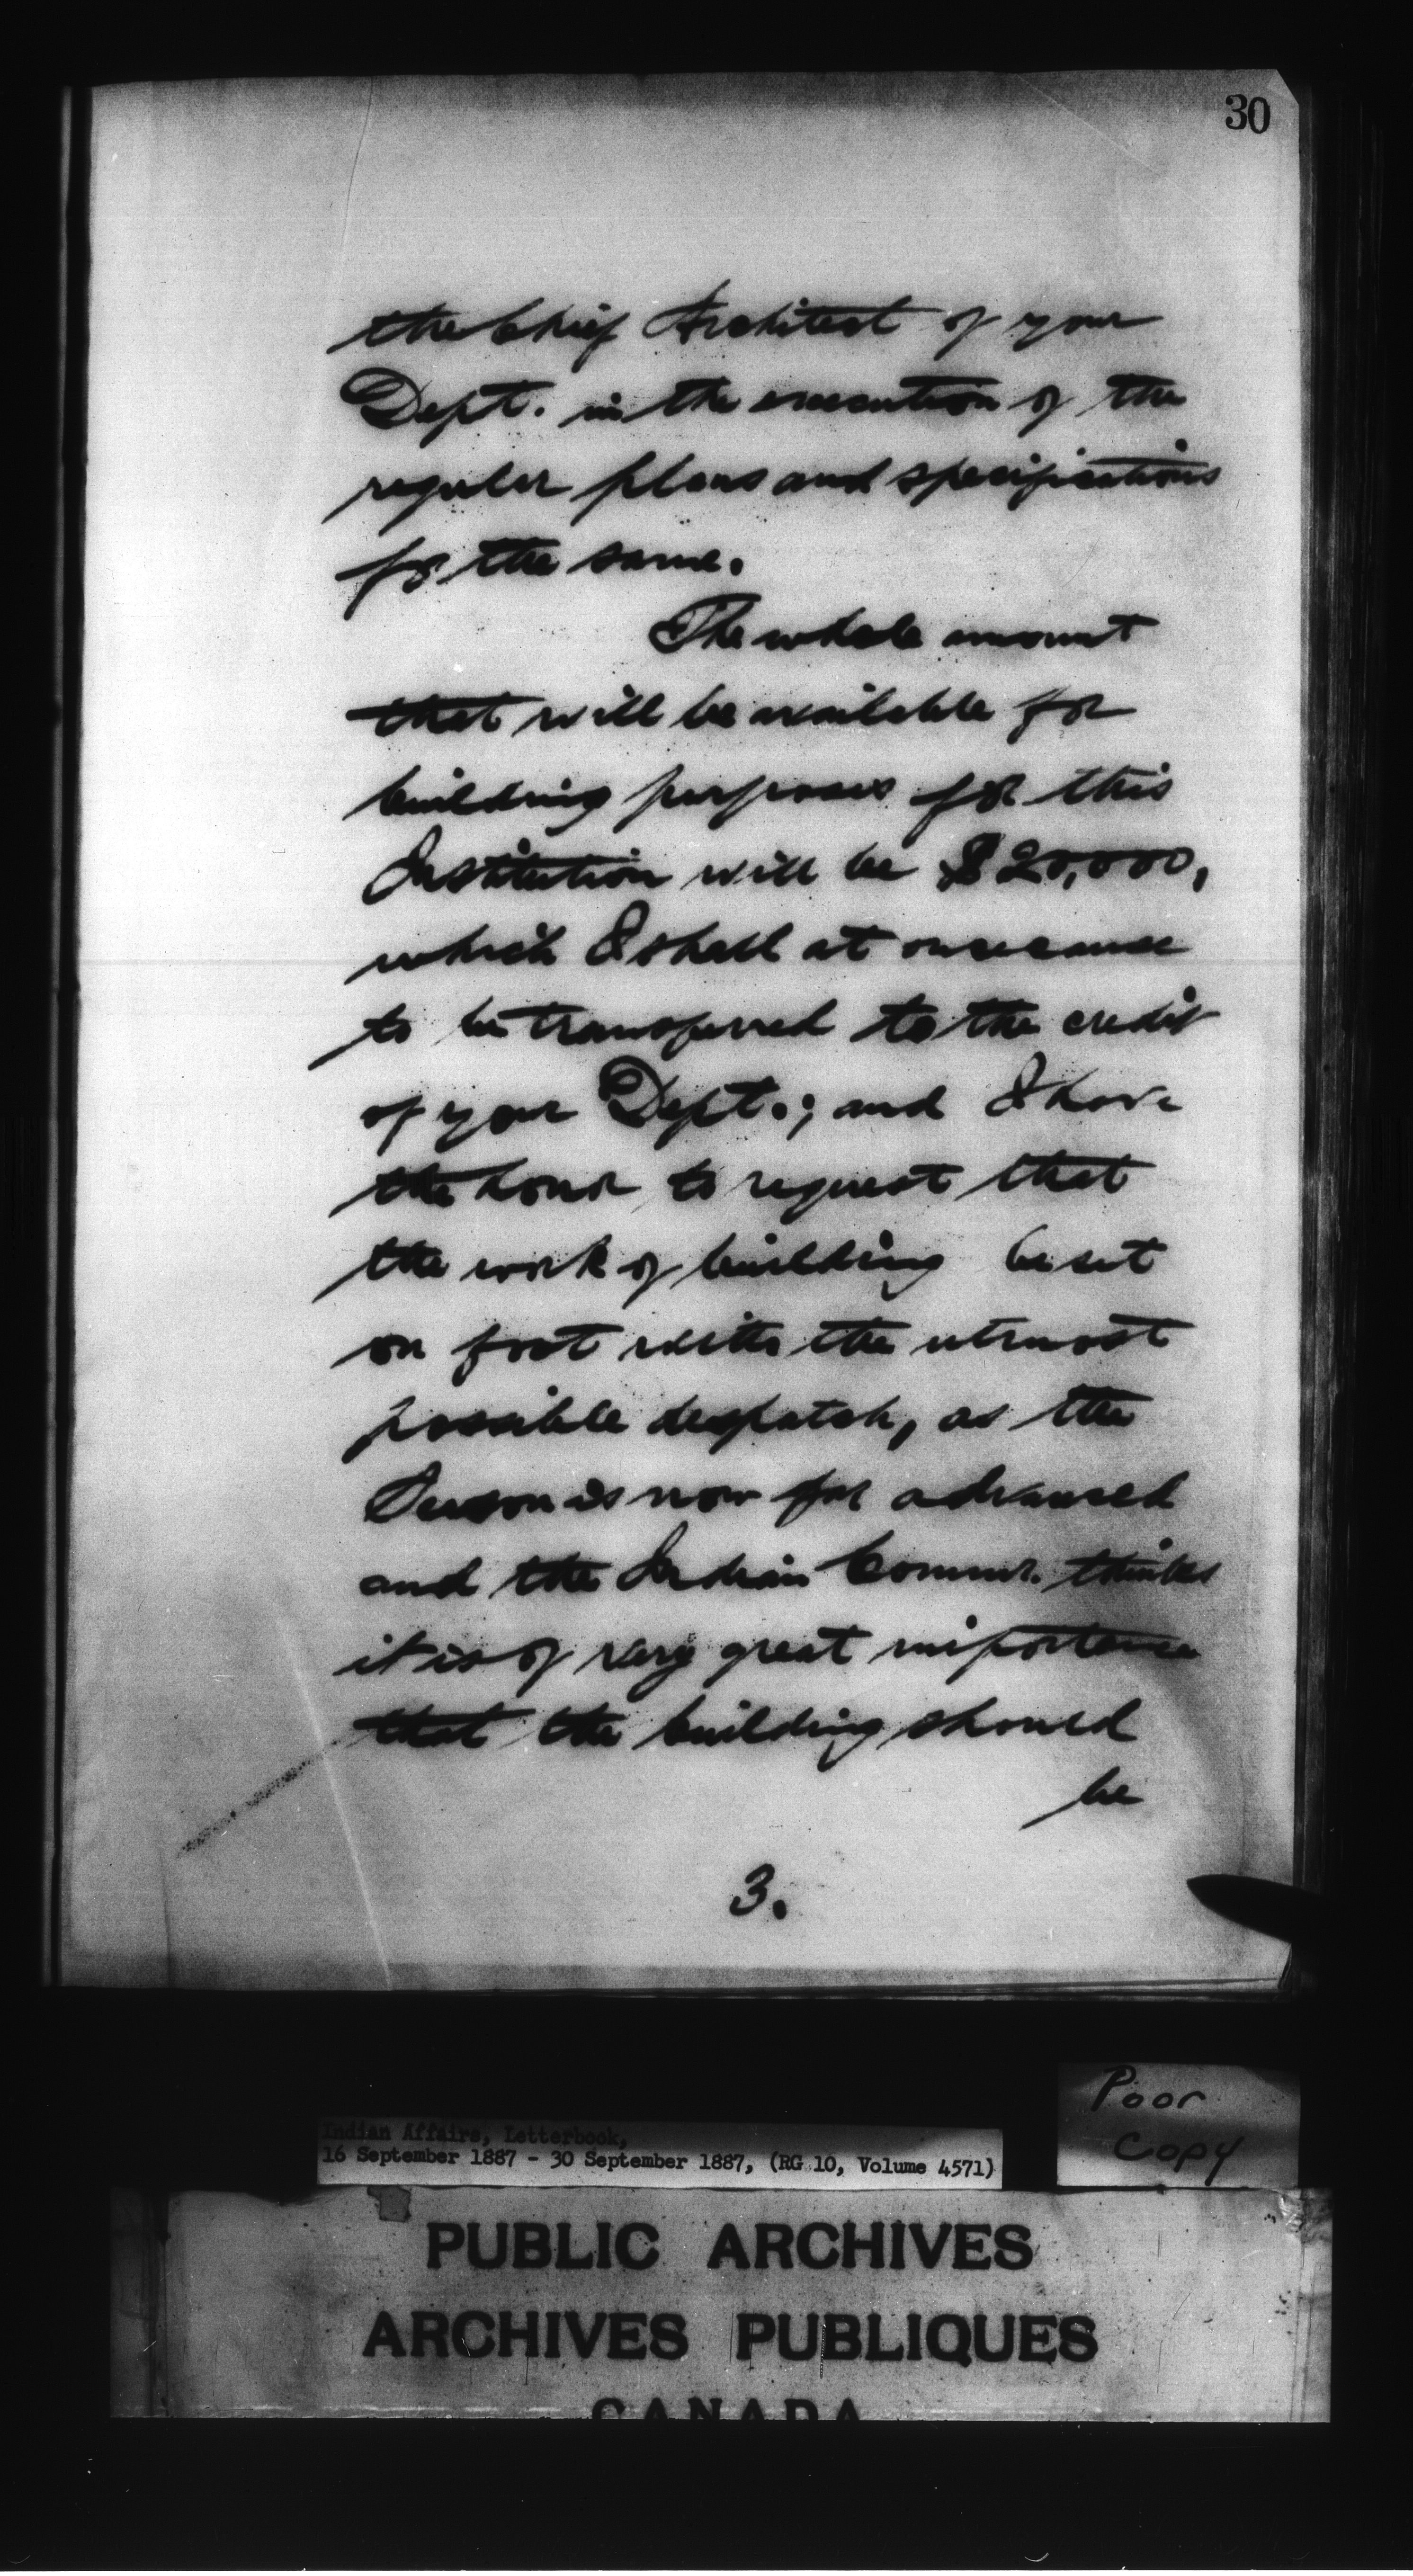 30
the Chief Architect of your
Dept. in the execution of the
regular plans and specifications
for the same.
The whole amount
that will be available for
building purposes for this
Institution will be $20,000,
which I shall at once cause
to be transferred to the credit
of your Dept.; and I have
the honor to request that
the work of building be set
on foot with the utmost
possible despatch, as the
Season is now far advanced
and the Indian Commr. thinks
it is of very great importance
that the building should
be
3.
Poor
Copy
Indian Affairs, Letterbook,
16 September 1887 - 30 September 1887, (RG 10, Volume 4571)
PUBLIC ARCHIVES
ARCHIVES PUBLIQUES
CANADA